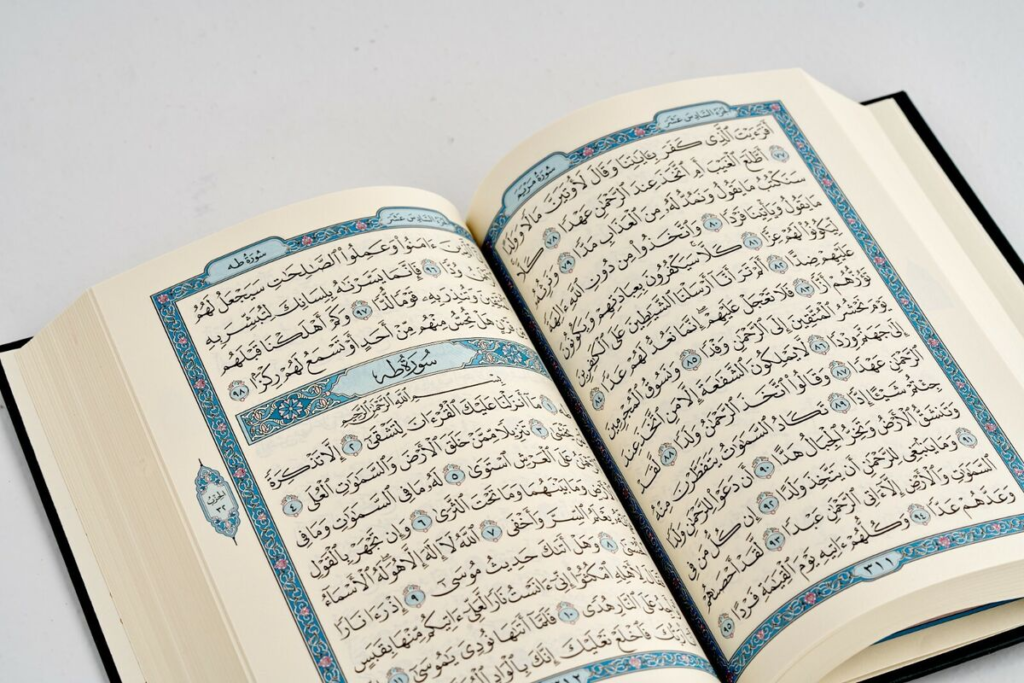 الجزء السادس عشر
سورة مريم
أَفَرَءَيْتَ ٱلَّذِى كَفَرَ بِـَٔايَٰتِنَا وَقَالَ لَأُوتَيَنَّ مَالًا وَوَلَدًا ٧٧
أَطَّلَعَ ٱلْغَيْبَ أَمِ ٱتَّخَذَ عِندَ ٱلرَّحْمَٰنِ عَهْدًا ٧٨ كَلَّا
سَنَكْتُبُ مَا يَقُولُ وَنَمُدُّ لَهُۥ مِنَ ٱلْعَذَابِ مَدًّا ٧٩ وَنَرِثُهُۥ
مَا يَقُولُ وَيَأْتِينَا فَرْدًا ٨٠ وَٱتَّخَذُوا۟ مِن دُونِ ٱللَّهِ ءَالِهَةً
لِّيَكُونُوا۟ لَهُمْ عِزًّا ٨١ كَلَّا سَيَكْفُرُونَ بِعِبَادَتِهِمْ وَيَكُونُونَ
عَلَيْهِمْ ضِدًّا ٨٢ أَلَمْ تَرَ أَنَّآ أَرْسَلْنَا ٱلشَّيَٰطِينَ عَلَى ٱلْكَٰفِرِينَ
تَؤُزُّهُمْ أَزًّا ٨٣ فَلَا تَعْجَلْ عَلَيْهِمْ إِنَّمَا نَعُدُّ لَهُمْ عَدًّا ٨٤
يَوْمَ نَحْشُرُ ٱلْمُتَّقِينَ إِلَى ٱلرَّحْمَٰنِ وَفْدًا ٨٥ وَنَسُوقُ ٱلْمُجْرِمِينَ
إِلَىٰ جَهَنَّمَ وِرْدًا ٨٦ لَّا يَمْلِكُونَ ٱلشَّفَٰعَةَ إِلَّا مَنِ ٱتَّخَذَ عِندَ
ٱلرَّحْمَٰنِ عَهْدًا ٨٧ وَقَالُوا۟ ٱتَّخَذَ ٱلرَّحْمَٰنُ وَلَدًا ٨٨ لَّقَدْ
جِئْتُمْ شَيْـًٔا إِدًّا ٨٩ تَكَادُ ٱلسَّمَٰوَٰتُ يَتَفَطَّرْنَ مِنْهُ
وَتَنشَقُّ ٱلْأَرْضُ وَتَخِرُّ ٱلْجِبَالُ هَدًّا ٩٠ أَن دَعَوْا۟ لِلرَّحْمَٰنِ وَلَدًا ٩١
وَمَا يَنۢبَغِى لِلرَّحْمَٰنِ أَن يَتَّخِذَ وَلَدًا ٩٢ إِن كُلُّ مَن فِى
ٱلسَّمَٰوَٰتِ وَٱلْأَرْضِ إِلَّآ ءَاتِى ٱلرَّحْمَٰنِ عَبْدًا ٩٣ لَّقَدْ أَحْصَىٰهُمْ
وَعَدَّهُمْ عَدًّا ٩٤ وَكُلُّهُمْ ءَاتِيهِ يَوْمَ ٱلْقِيَٰمَةِ فَرْدًا ٩٥
٣١١
الجزء السادس عشر
سورة طه
ءَامَنُوا۟ وَعَمِلُوا۟ ٱلصَّٰلِحَٰتِ سَيَجْعَلُ لَهُمُ
وُدًّا ٩٦ فَإِنَّمَا يَسَّرْنَٰهُ بِلِسَانِكَ لِتُبَشِّرَ بِهِ
وَتُنذِرَ بِهِۦ قَوْمًا لُّدًّا ٩٧ وَكَمْ أَهْلَكْنَا قَبْلَهُم
هَلْ تُحِسُّ مِنْهُم مِّنْ أَحَدٍ أَوْ تَسْمَعُ لَهُمْ رِكْزًۢا ٩٨
سورة طه
بِسْمِ ٱللَّهِ ٱلرَّحْمَٰنِ ٱلرَّحِيمِ
١ مَآ أَنزَلْنَا عَلَيْكَ ٱلْقُرْءَانَ لِتَشْقَىٰٓ ٢ إِلَّا تَذْكِرَةً
تَنزِيلًا مِّمَّنْ خَلَقَ ٱلْأَرْضَ وَٱلسَّمَٰوَٰتِ ٱلْعُلَى ٤
عَلَى ٱلْعَرْشِ ٱسْتَوَىٰ ٥ لَهُۥ مَا فِى ٱلسَّمَٰوَٰتِ وَمَا فِى
وَمَا بَيْنَهُمَا وَمَا تَحْتَ ٱلثَّرَىٰ ٦ وَإِن تَجْهَرْ بِٱلْقَوْلِ
يَعْلَمُ ٱلسِّرَّ وَأَخْفَى ٧ ٱللَّهُ لَآ إِلَٰهَ إِلَّا هُوَ لَهُ ٱلْأَسْمَآءُ
وَهَلْ أَتَىٰكَ حَدِيثُ مُوسَىٰٓ ٩ إِذْ رَءَا نَارًا
لِأَهْلِهِ ٱمْكُثُوٓا۟ إِنِّىٓ ءَانَسْتُ نَارًا لَّعَلِّىٓ ءَاتِيكُم مِّنْهَا بِقَبَسٍ
عَلَى ٱلنَّارِ هُدًى ١٠ فَلَمَّآ أَتَىٰهَا نُودِىَ يَٰمُوسَىٰٓ ١١
رَبُّكَ فَٱخْلَعْ نَعْلَيْكَ إِنَّكَ بِٱلْوَادِ
٣١٢
الحزب
٣٢